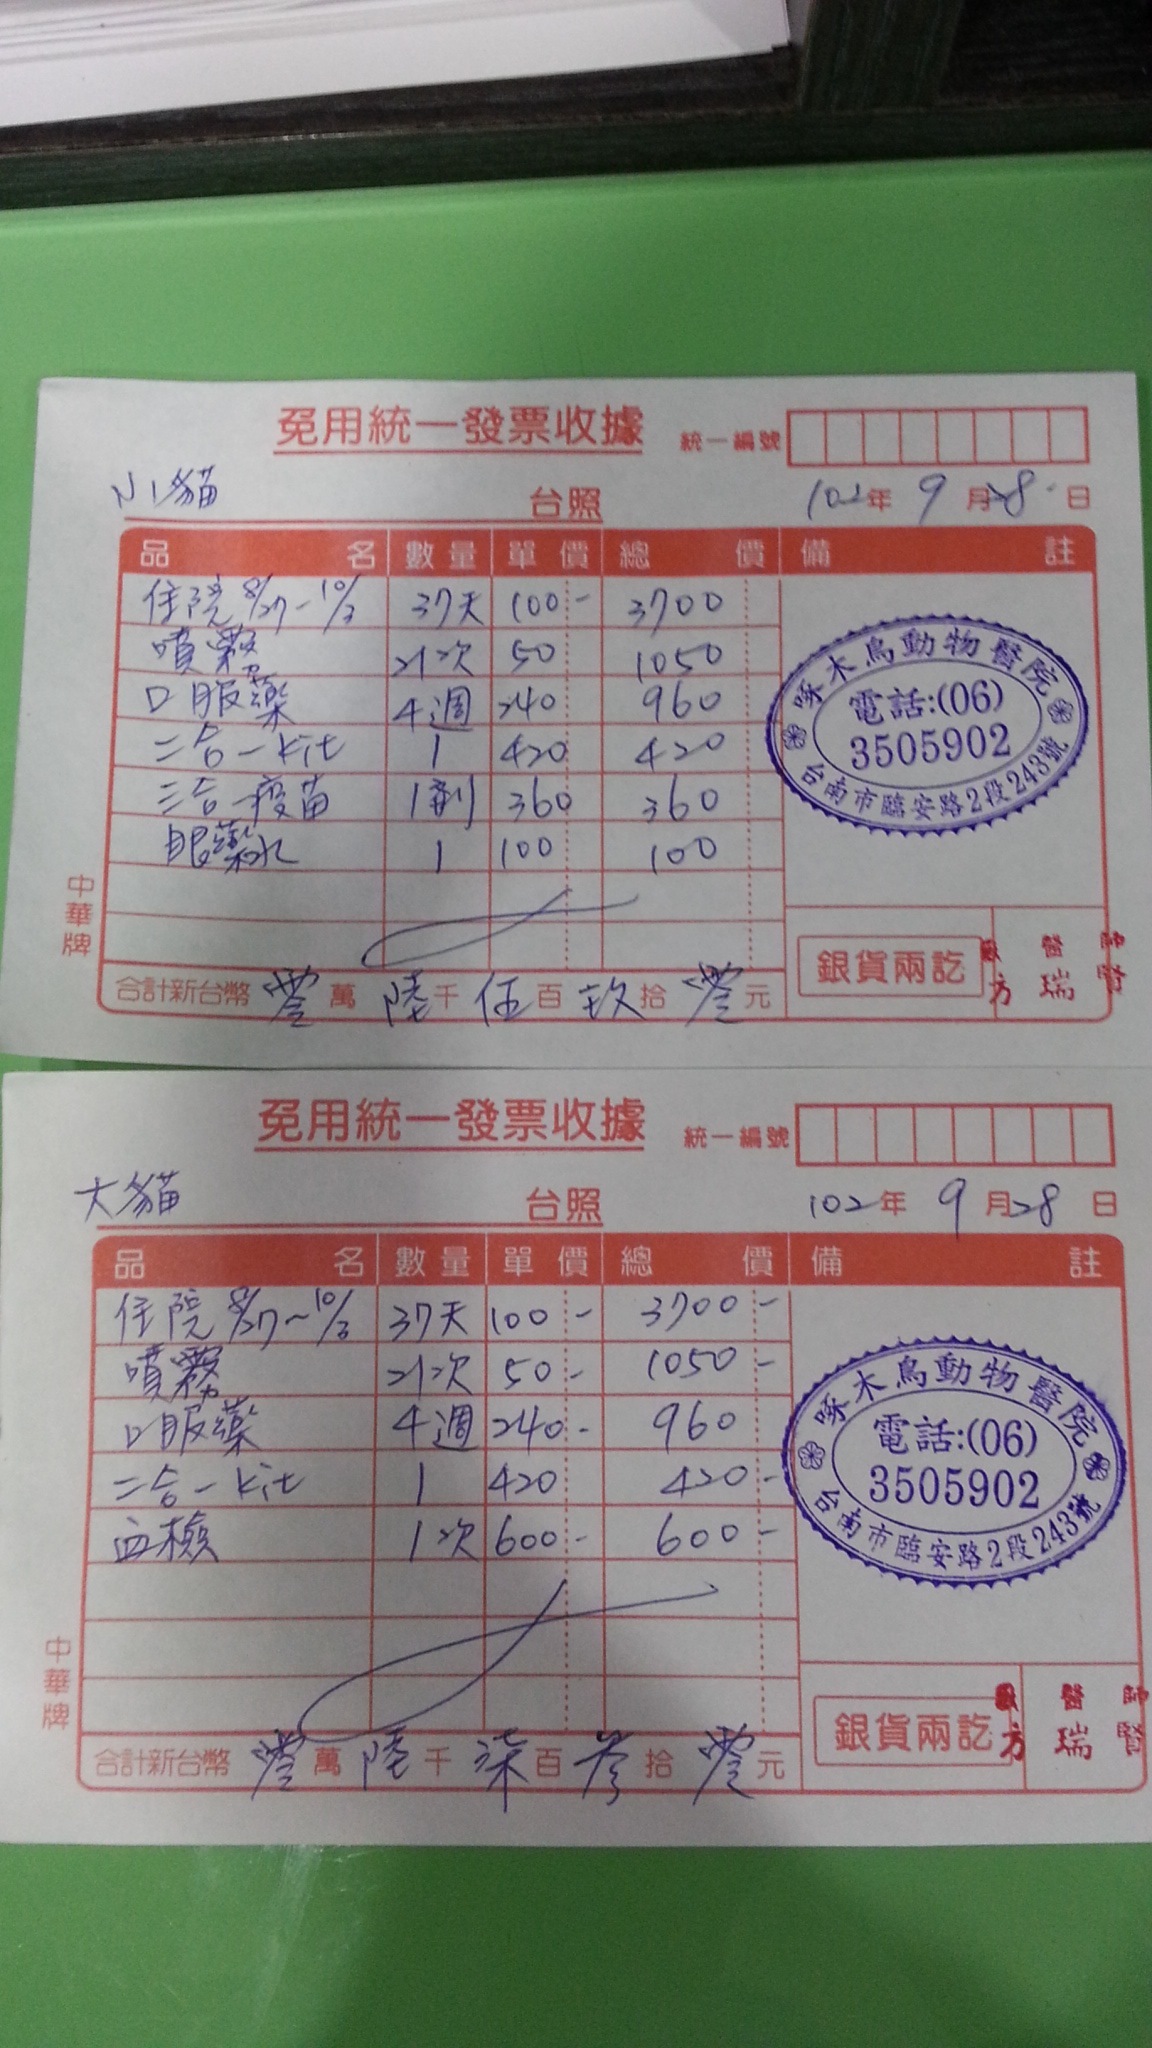 免用統一發票收據 統一編號
小貓 台照 102年 9月28日
品名 數量 單價 總價 備註
住院8/27-10/2 37天 100- 3700
噴霧 21次 50 1050
口服藥 4週 240 960
二合一kit 1 420 420
三合一疫苗 1劑 360 360
眼藥水 1 100 100
啄木鳥動物醫院
電話:(06)
3505902
台南市臨安路2段243號
中華牌
合計新台幣 零萬陸千伍百玖拾零元
銀貨兩訖
獸醫師
方瑞賢
免用統一發票收據 統一編號
大貓 台照 102年 9月28日
品名 數量 單價 總價 備註
住院8/27~10/2 37天 100- 3700-
噴霧 21次 50- 1050-
口服藥 4週 240- 960
二合一kit 1 420 420-
血檢 1次 600- 600-
啄木鳥動物醫院
電話:(06)
3505902
台南市臨安路2段243號
中華牌
合計新台幣 零萬陸千柒百參拾零元
銀貨兩訖
獸醫師
方瑞賢